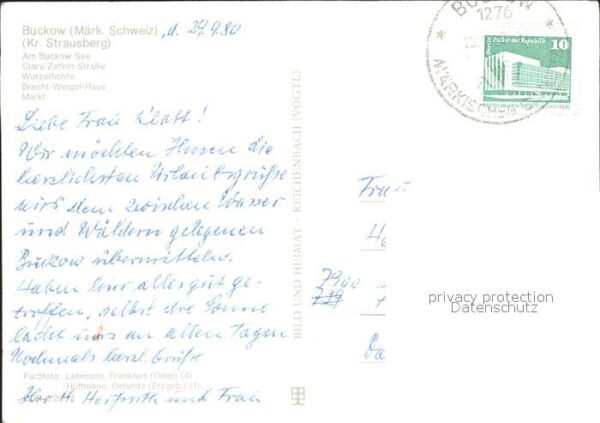 Buckow (Märk. Schweiz) , d. 29.9.80
(Kr. Strausberg)
Am Buckow-See
Clara-Zetkin-Straße
Wurzelfichte
Brecht-Weigel-Haus
Markt
Liebe Frau Klatt!
Wir möchten Ihnen die
herzlichsten Urlaubsgrüße
aus dem zwischen Wasser
und Wäldern gelegenen
Buckow übermitteln.
Haben hier alles gut ge-
troffen, selbst die Sonne
lacht uns an allen Tagen
Nochmals herzl. Grüße
Farbfoto: Lehmann, Frankfurt (Oder) (4)
Hoffmann, Oelsnitz (Erzgeb.) (1)
Horst und Frau
BILD UND HEIMAT · REICHENBACH (VOGTL)
BUCKOW
1276
MÄRKISCHE
Palast der Republik
10
Frau
7900
privacy protection
Datenschutz